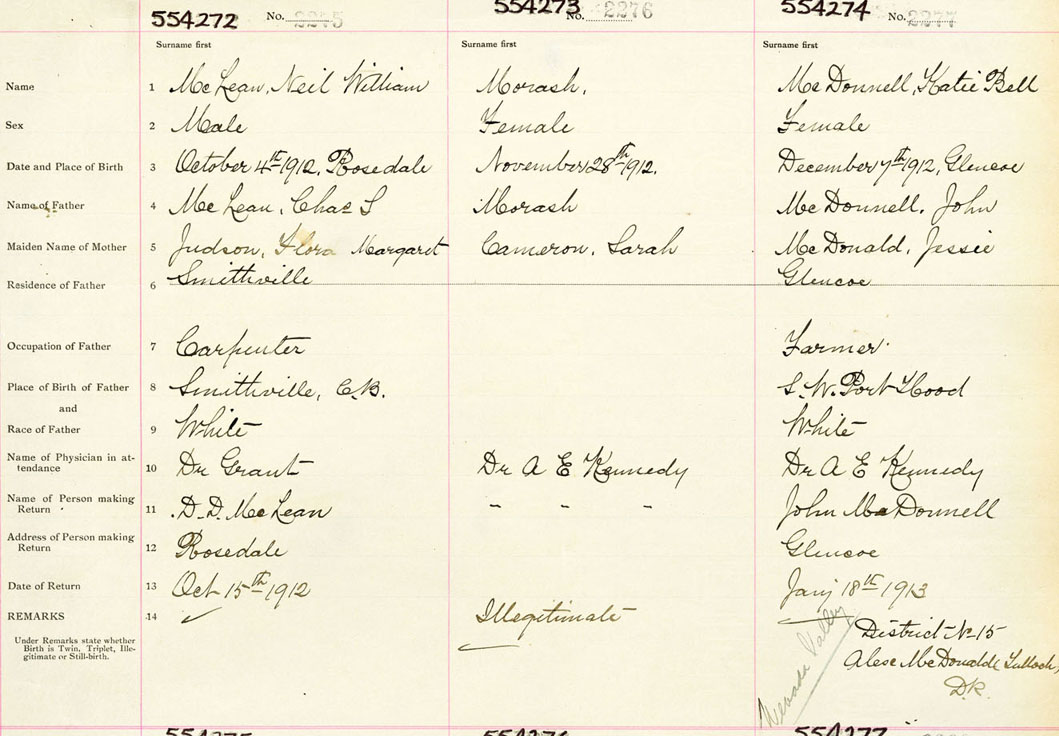 554272 No. 2275 554273 No. 2276 554274 No. 2277
Surname first Surname first Surname first
Name 1 McLean, Neil William Morash, McDonnell, Katie Bell
Sex 2 Male Female Female
Date and Place of Birth 3 October 4th 1912, Rosedale November 28th 1912. December 7th 1912, Glencoe
Name of Father 4 McLean, Chas S Morash McDonnell, John
Maiden Name of Mother 5 Judson, Flora Margaret Cameron, Sarah McDonald, Jessie
Residence of Father 6 Smithville Glencoe
Occupation of Father 7 Carpenter Farmer
Place of Birth of Father 8 Smithville, C.B. S.W. Port Hood
and
Race of Father 9 White White
Name of Physician in at-
tendance 10 Dr Grant Dr A E Kennedy Dr A E Kennedy
Name of Person making
Return 11 D.D. McLean - - - John McDonnell
Address of Person making
Return 12 Rosedale Glencoe
Date of Return 13 Oct 15th 1912 Jany 18th 1913
REMARKS 14 ✓ Illegitimate
Under Remarks state whether
Birth is Twin, Triplet, Ille-
gitimate or Still-birth.
District No 15
McDonald Tulloch,
D.R.
Valley
554275 554276 554277